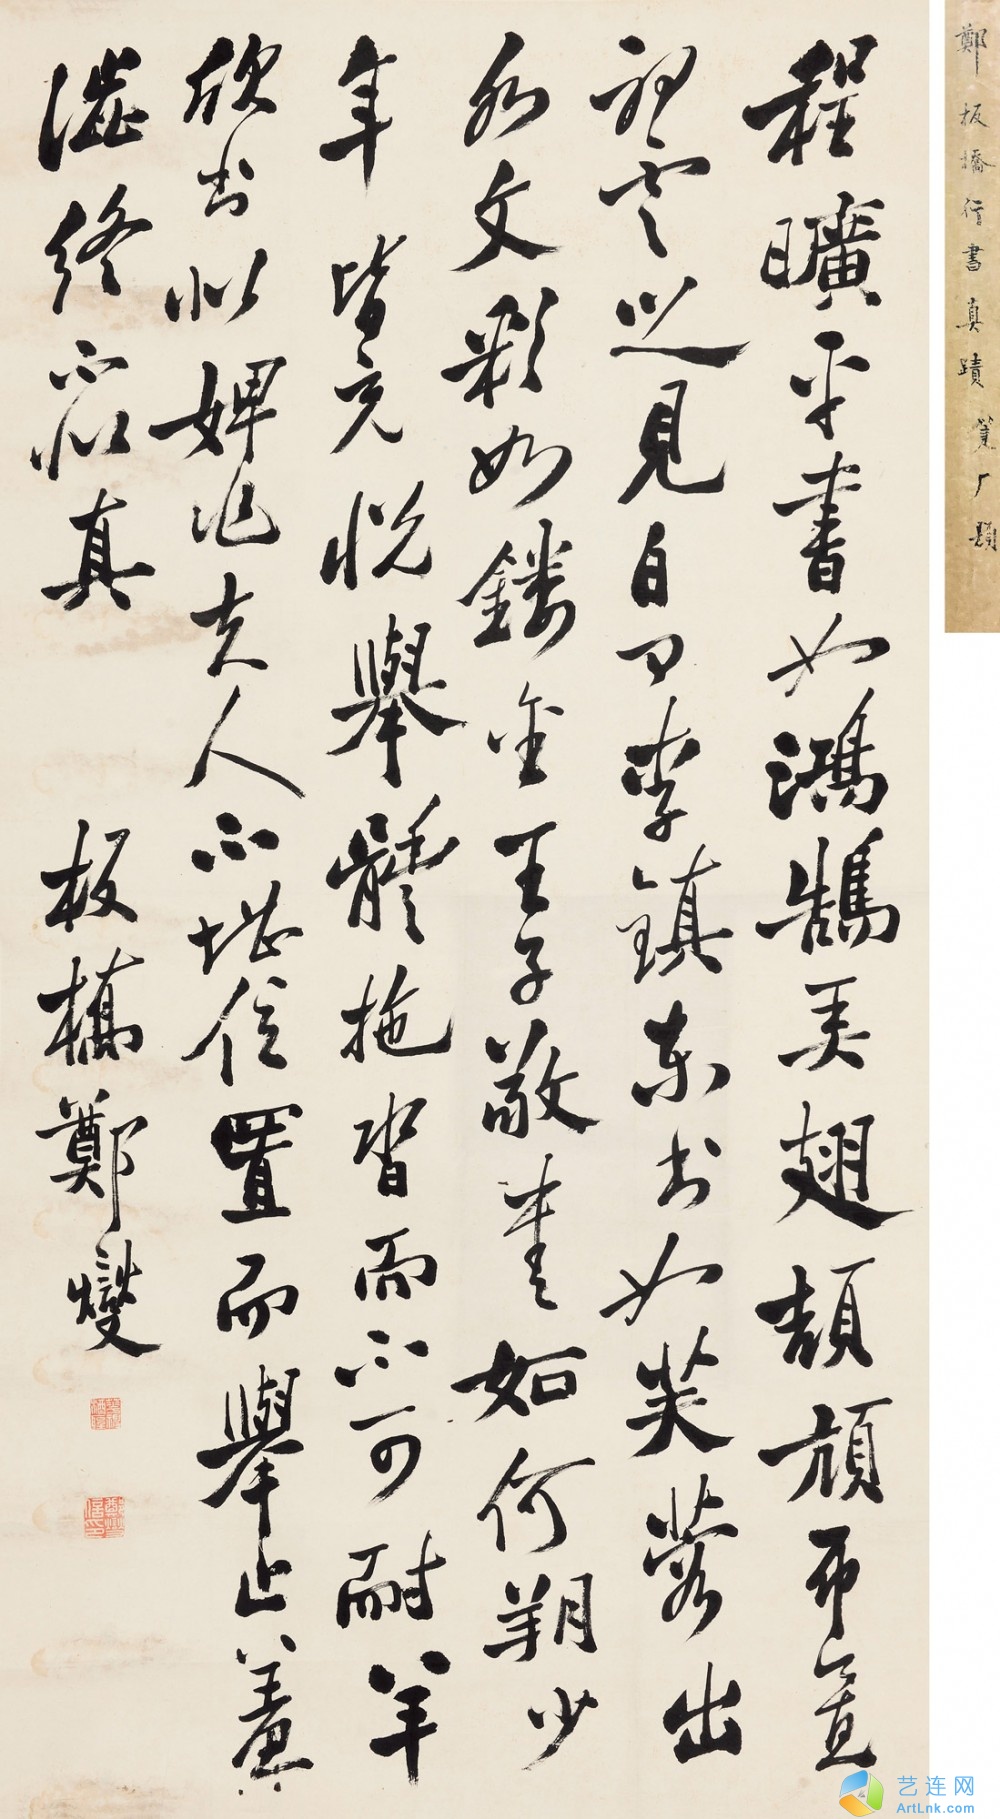 程曠平書如鴻鵠弄翅頡頏布置
初雲之見白日李鎮東書如芙蓉出
水文彩如鏤金王子敬書如何朔少
年皆充悅舉體拖沓而不可耐羊
欣書似婢作夫人不堪位置而舉止羞
澀終不似真
板橋鄭燮
鄭板橋行書真蹟 厂題
艺连网
ArtLnk.com